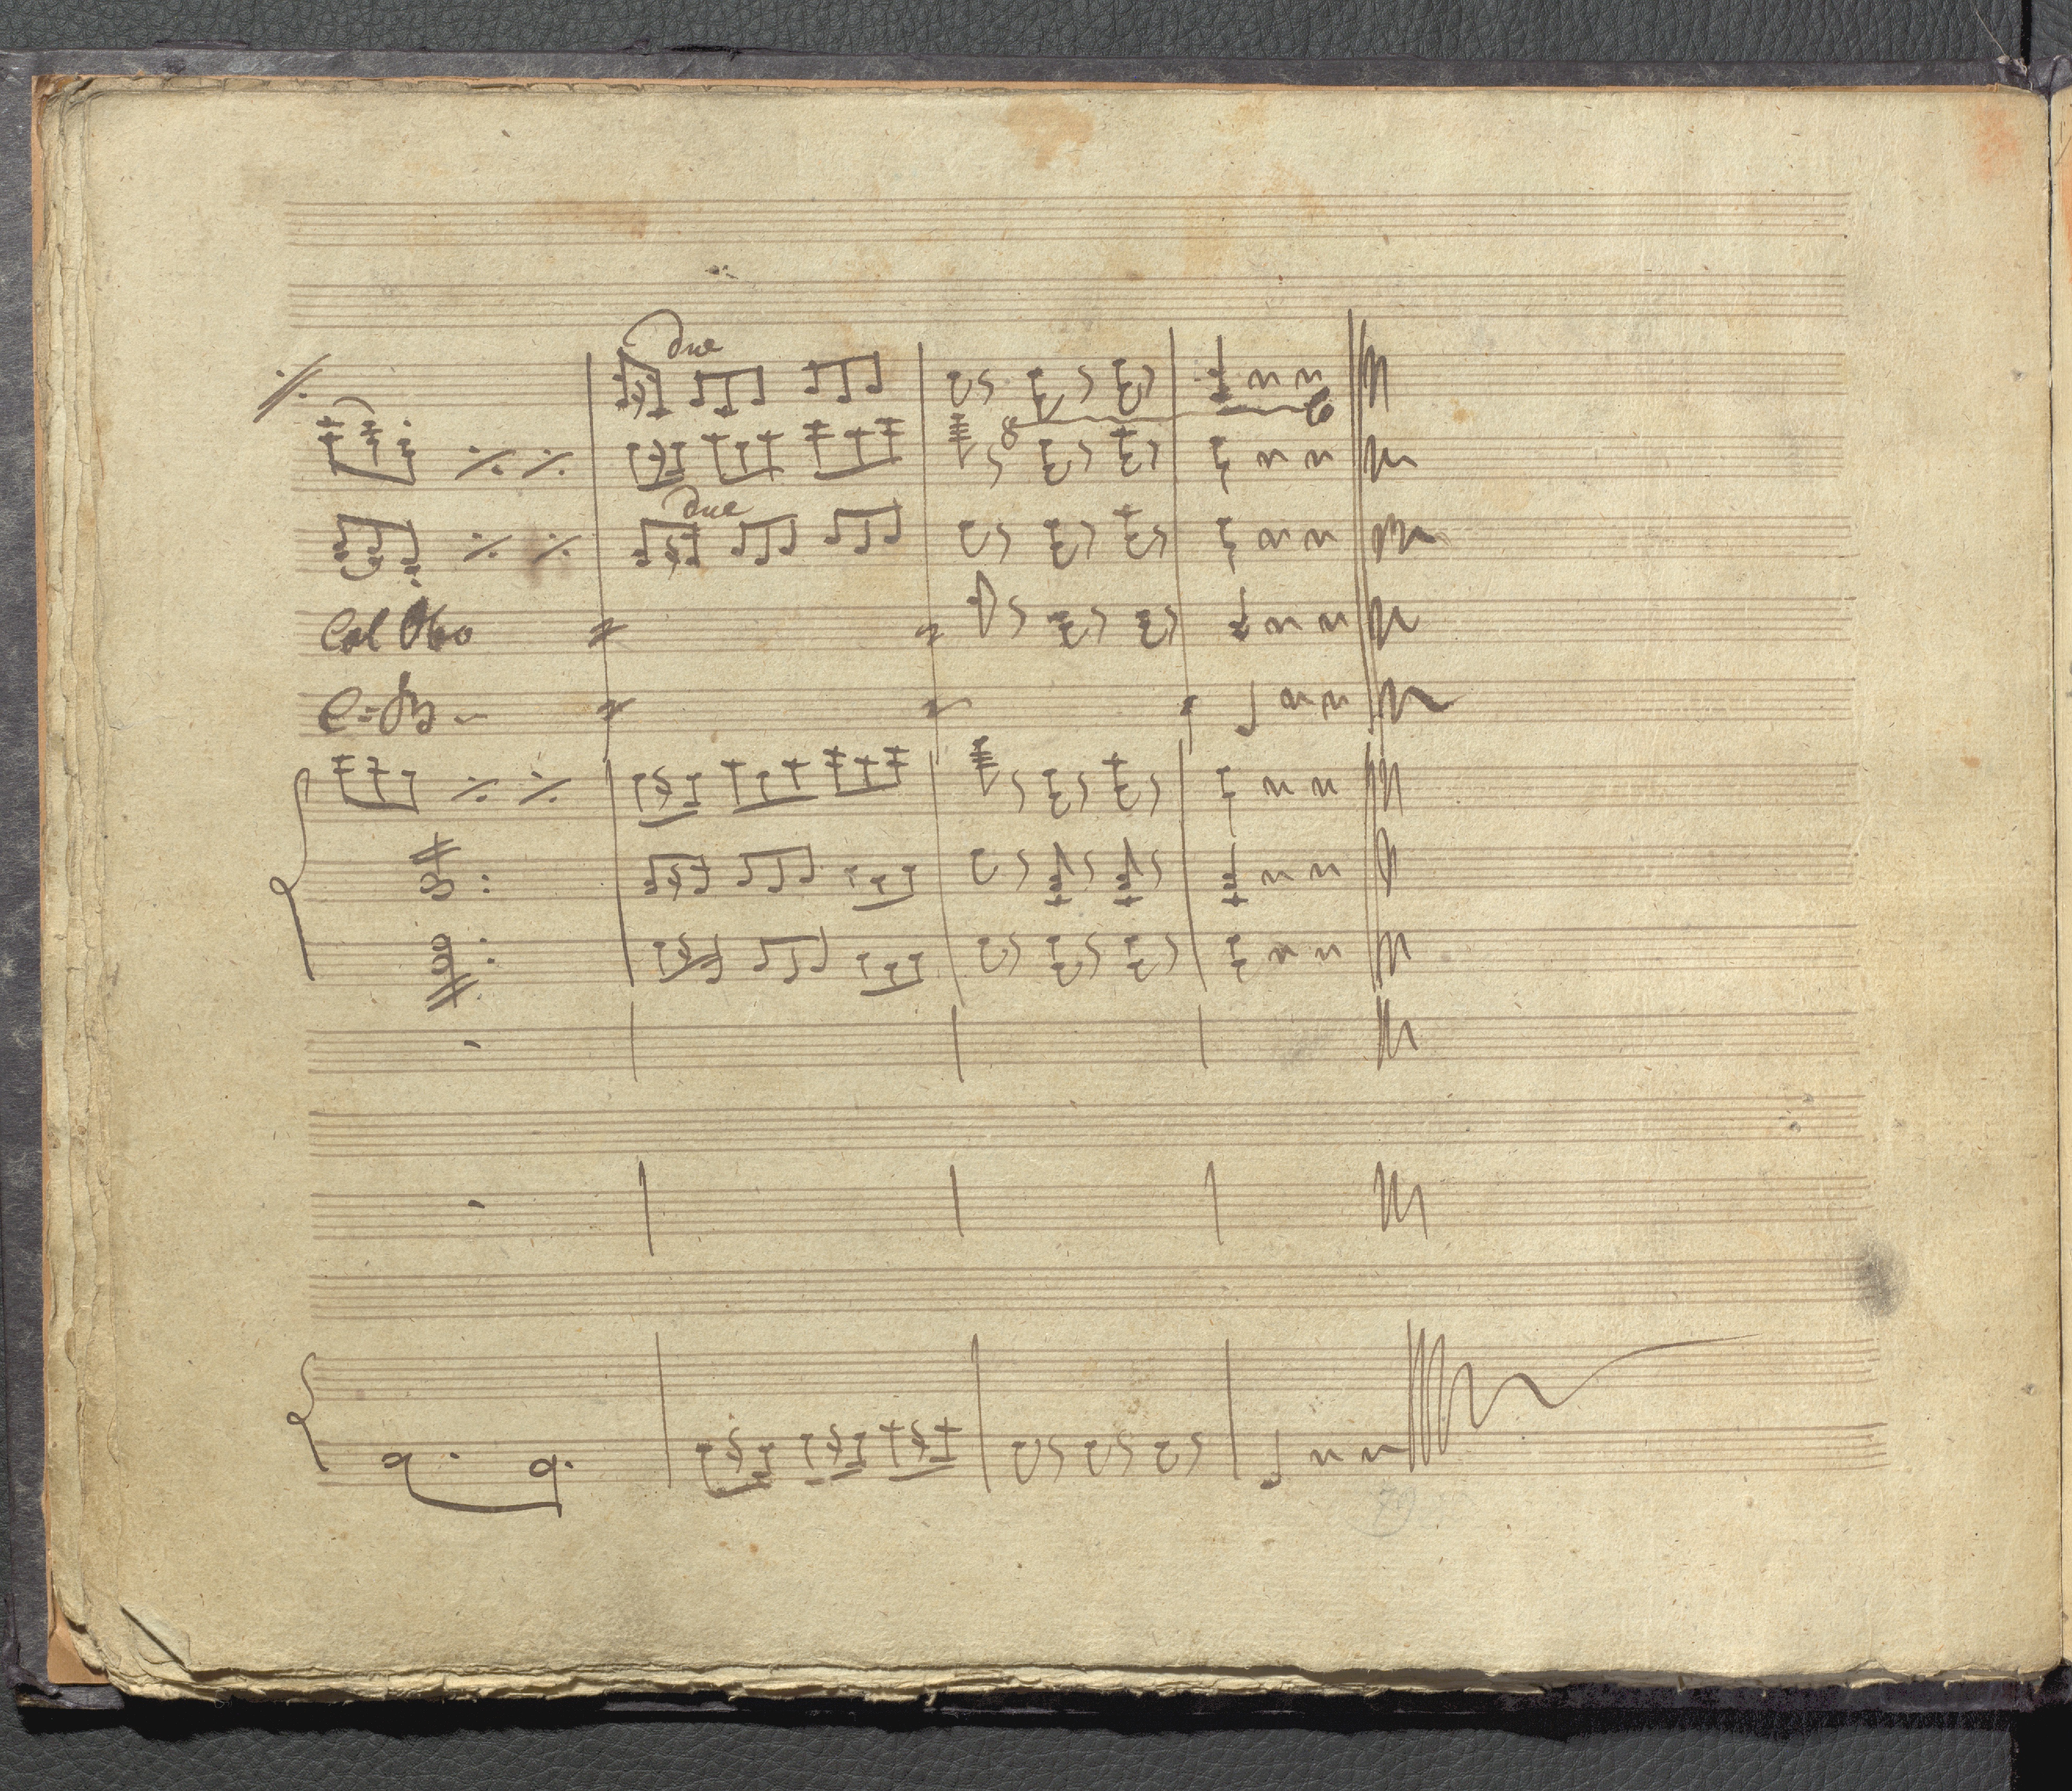 due
8
due
Col Obo
C: B